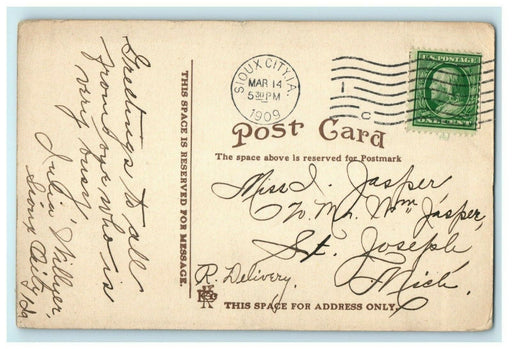 Greetings to all
from one who is
very busy
Julia Hillyer,
Sioux City,
Ida
THIS SPACE IS RESERVED FOR MESSAGE.
SIOUX CITY, IA.
MAR 14
5 30 PM
1909
1
C
U.S. POSTAGE
ONE CENT
Post Card
The space above is reserved for Postmark
Miss I. Jasper
c/o Mr. Wm Jasper,
St. Joseph
Mich.
R. Delivery.
THIS SPACE FOR ADDRESS ONLY.